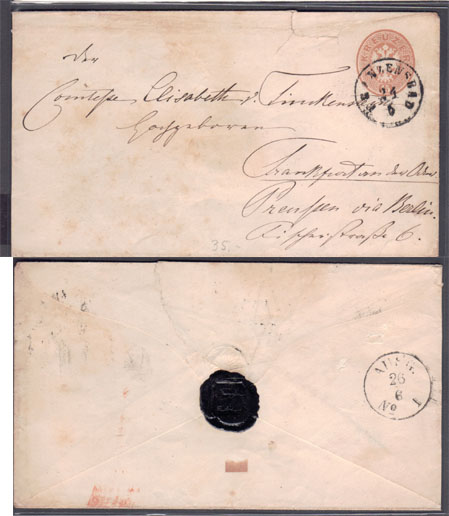 KREUZER
FRANZENSBAD
24
6
der
Comtesse Elisabeth v. Finckens
Hochgeboren
Frankfurt an der Oder
Preußen via Berlin.
Fischerstraße 6.
35.-
AUSG.
26
6
No 1